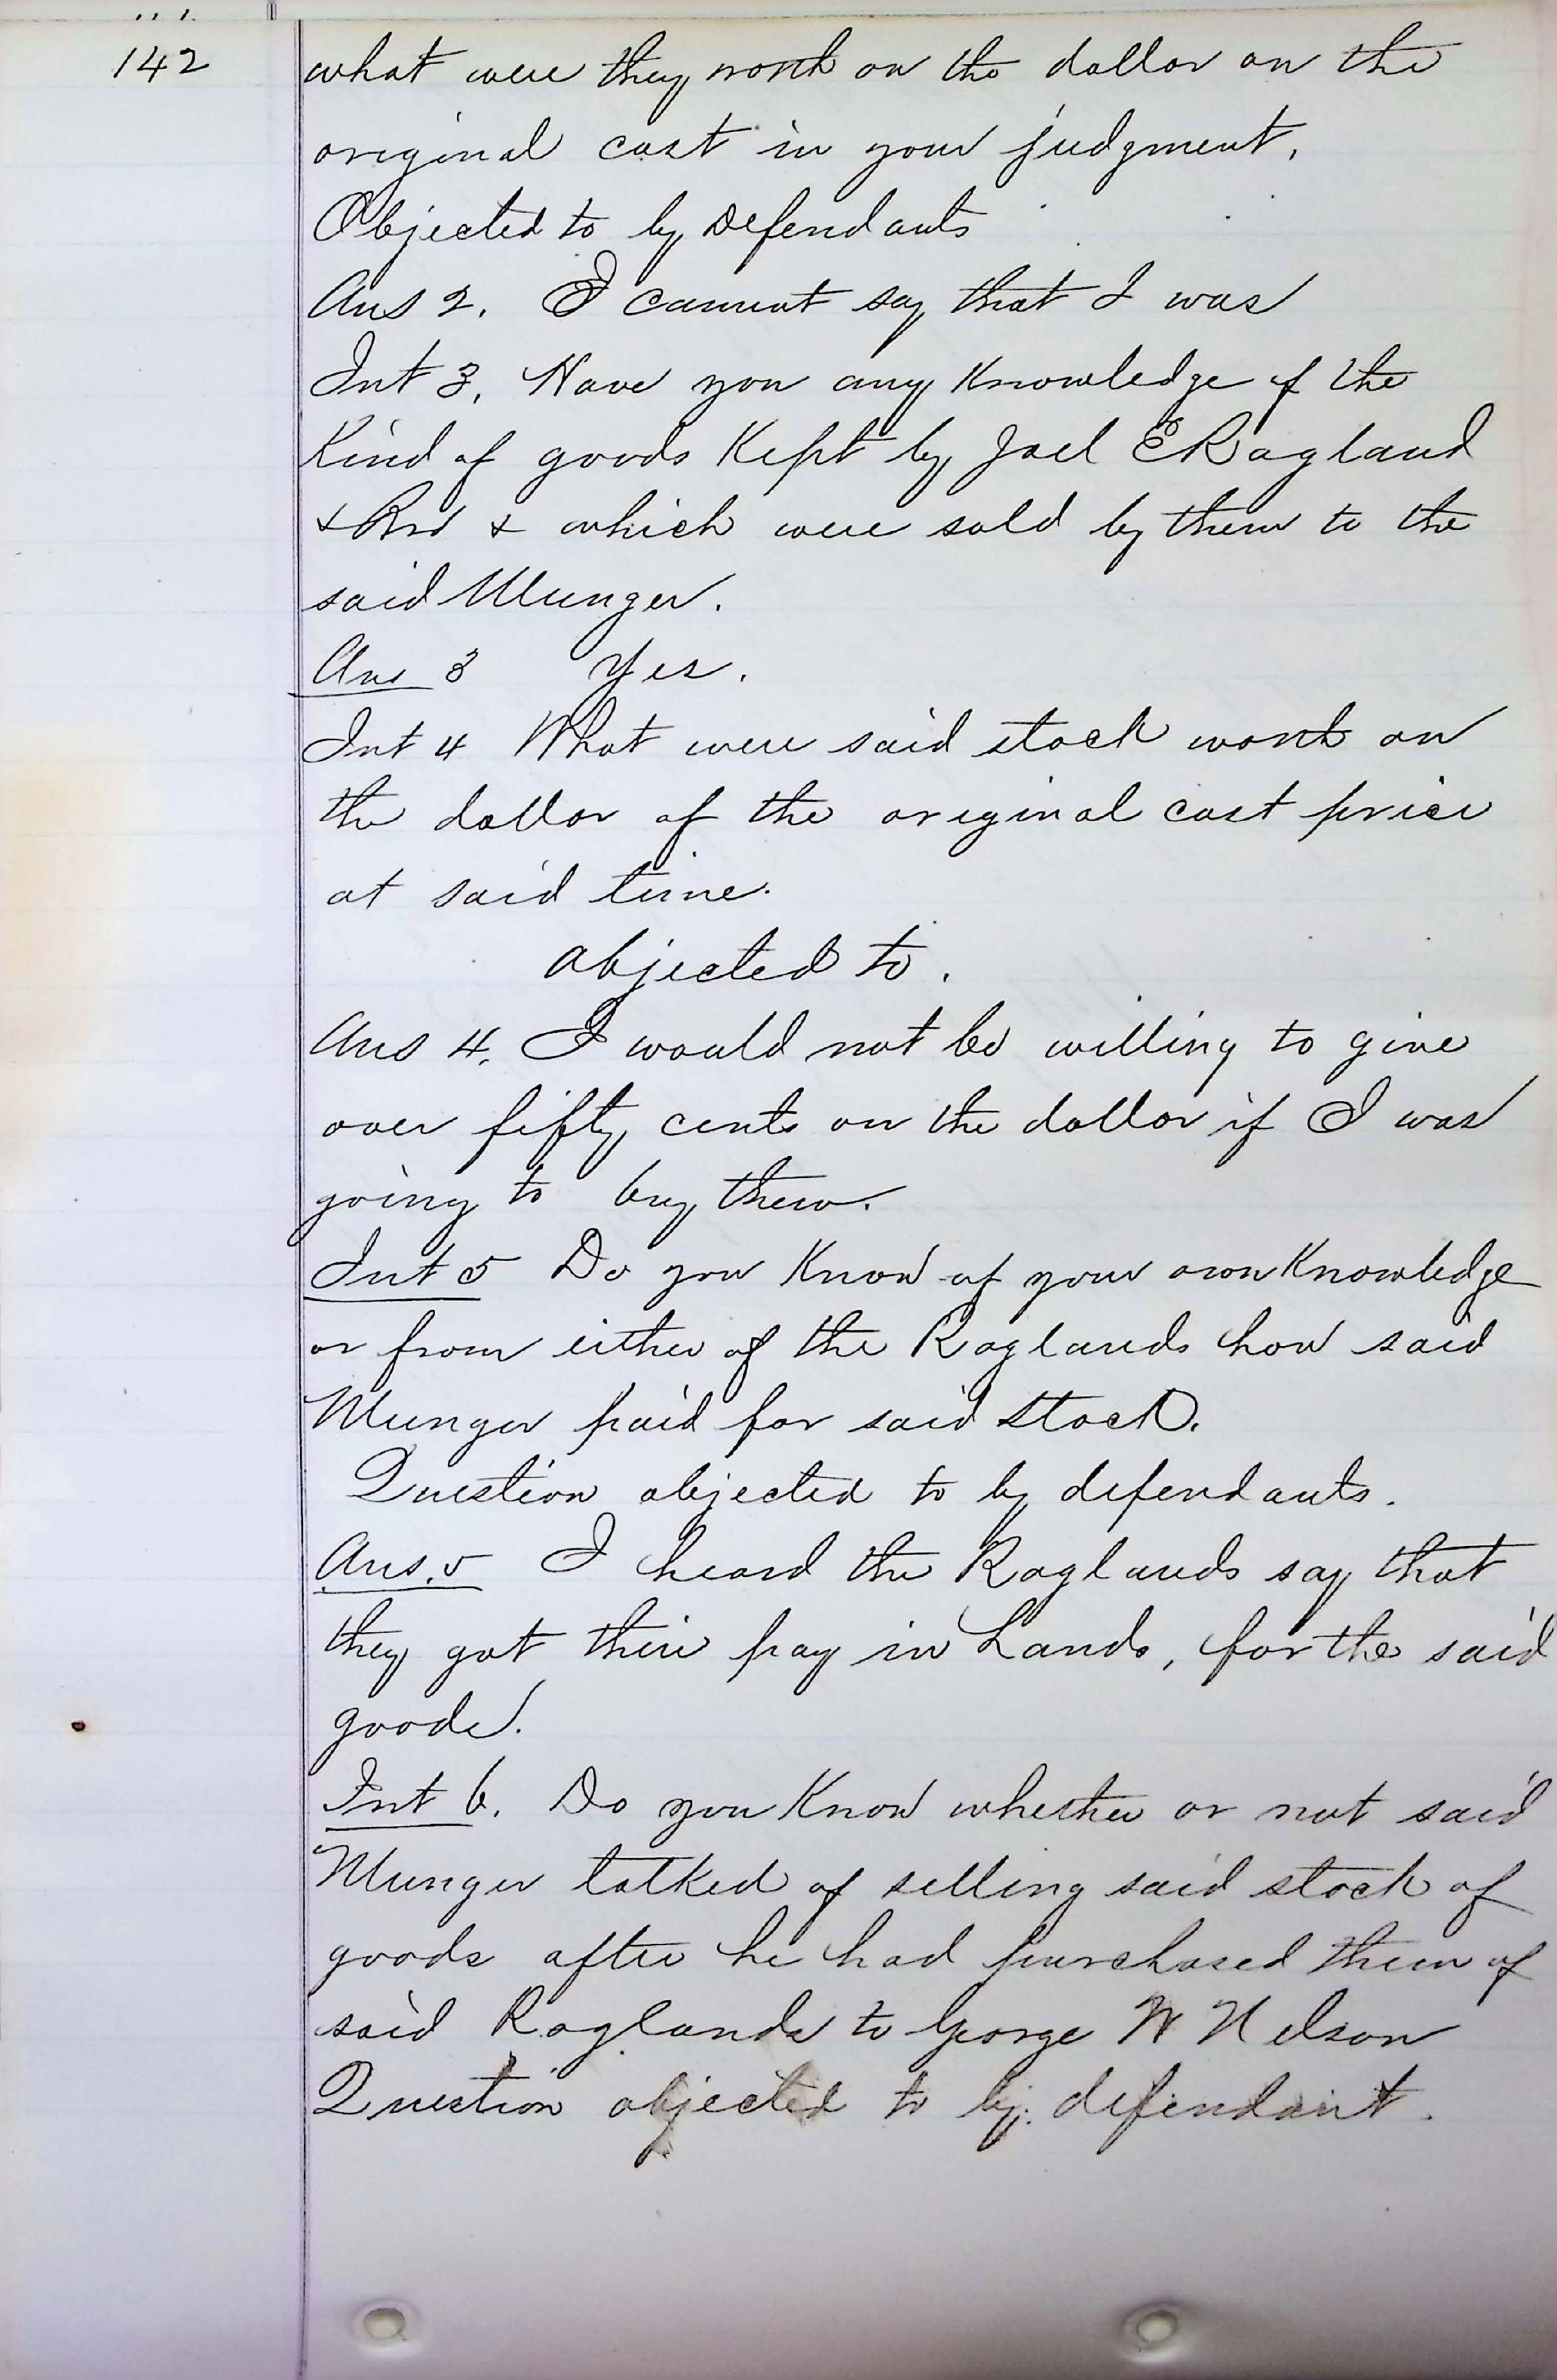 142
what were they worth on the dollar on the
original cost in your judgment.
Objected to by Defendants
Ans 2. I cannot say that I was
Int 3. Have you any Knowledge of the
Kind of goods Kept by Joel E Ragland
& Bro & which were sold by them to the
said Munger.
Ans 3 Yes.
Int 4 What were said stock worth on
the dollar of the original cost price
at said time.
objected to.
Ans 4. I would not be willing to give
over fifty cents on the dollar if I was
going to buy them.
Int 5 Do you Know of your own Knowledge
or from either of the Raglands how said
Munger paid for said stock.
Question objected to by defendants.
Ans. 5 I heard the Raglands say that
they got their pay in Lands, for the said
goods.
Int 6. Do you Know whether or not said
Munger talked of selling said stock of
goods after he had purchased them of
said Raglands to George W Nelson
Question objected to by defendant.